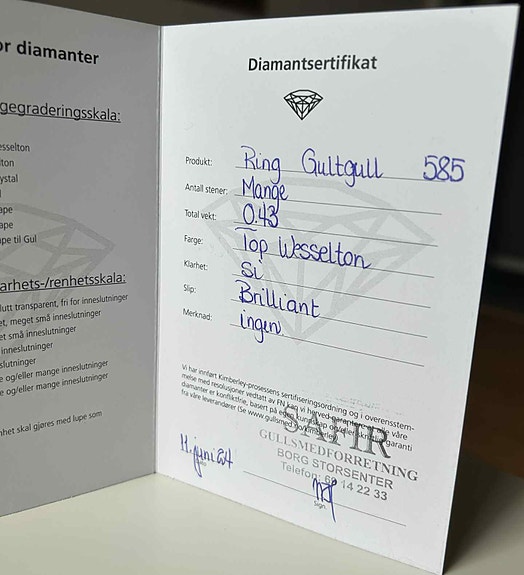 or diamanter
gegraderingsskala:
esselton
lton
ystal
l
ape
ape
pe til Gul
arhets-/renhetsskala:
lutt transparent, fri for inneslutninger
et, meget små inneslutninger
et små inneslutninger
inneslutninger
slutninger
e og/eller mange inneslutninger
e og/eller mange inneslutninger
nhet skal gjøres med lupe som
Diamantsertifikat
Produkt: Ring Gultgull 585
Antall stener: Mange
Total vekt: 0.43
Farge: Top Wesselton
Klarhet: Si
Slip: Brilliant
Merknad: ingen
Vi har innført Kimberley-prosessens sertifiseringsordning og i overensstem-
melse med resolusjoner vedtatt av FN kan vi herved garantere våre
diamanter er konfliktfrie, basert på egen kunnskap og/eller skriftlig garanti
fra våre leverandører (Se www.gullsmed.no/kimberley)
SAFIR
GULLSMEDFORRETNING
BORG STORSENTER
Telefon: 69 14 22 33
11. juni 24
sign.